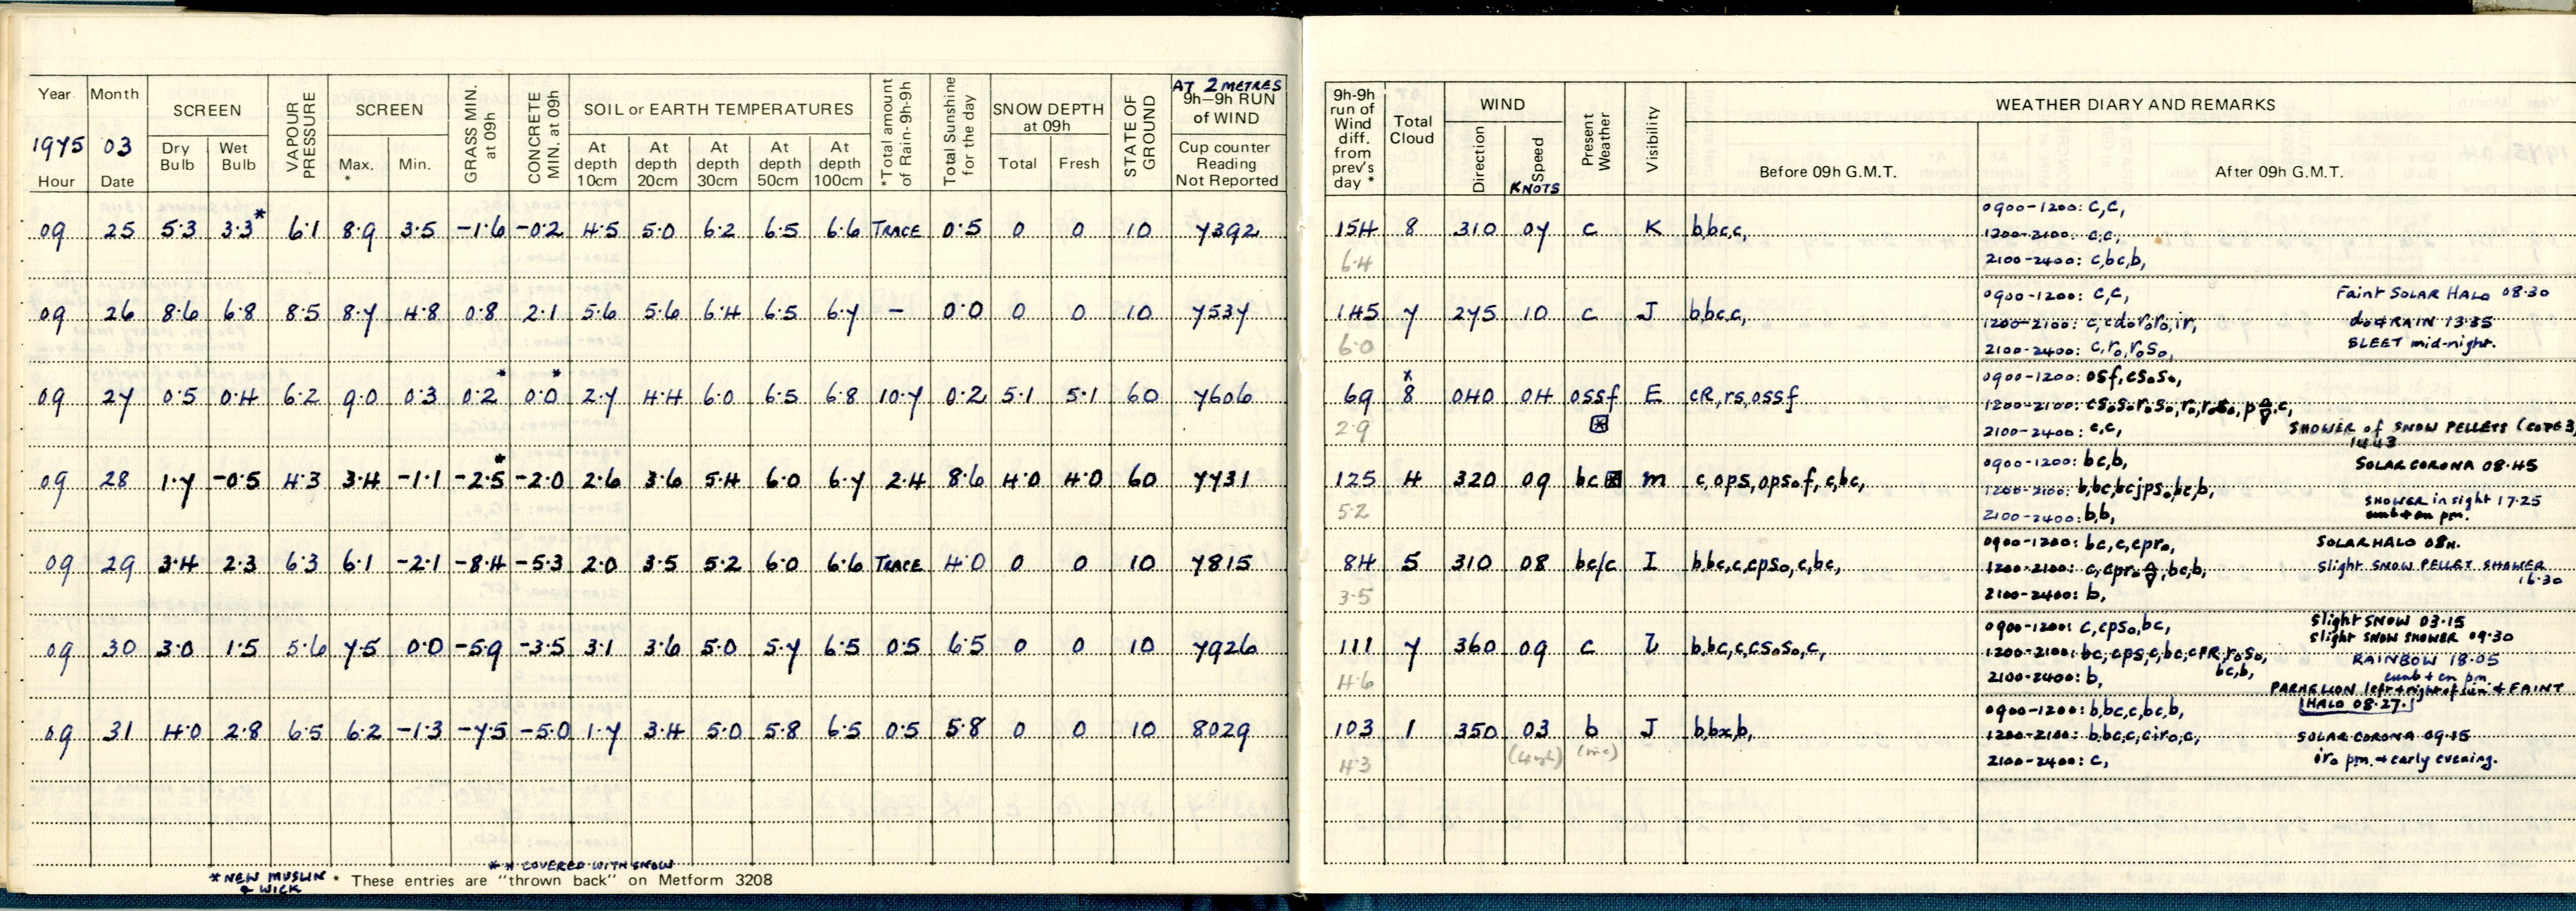 Year Month SCREEN VAPOUR PRESSURE SCREEN GRASS MIN. at 09h CONCRETE MIN. at 09h SOIL or EARTH TEMPERATURES *Total amount of Rain-9h-9h Total Sunshine for the day SNOW DEPTH at 09h STATE OF GROUND AT 2 METRES 9h-9h RUN of WIND
1975 03 Dry Bulb Wet Bulb Max. * Min. At depth 10cm At depth 20cm At depth 30cm At depth 50cm At depth 100cm Total Fresh Cup counter Reading Not Reported
Hour Date
09 25 5.3 3.3* 6.1 8.9 3.5 -1.6 -0.2 4.5 5.0 6.2 6.5 6.6 TRACE 0.5 0 0 10 7392
09 26 8.6 6.8 8.5 8.7 4.8 0.8 2.1 5.6 5.6 6.4 6.5 6.7 - 0.0 0 0 10 7537
09 27 0.5 0.4 6.2 9.0 0.3 0.2* 0.0* 2.7 4.4 6.0 6.5 6.8 10.7 0.2 5.1 5.1 60 7606
09 28 1.7 -0.5 4.3 3.4 -1.1 -2.5* -2.0 2.6 3.6 5.4 6.0 6.7 2.4 8.6 4.0 4.0 60 7731
09 29 3.4 2.3 6.3 6.1 -2.1 -8.4 -5.3 2.0 3.5 5.2 6.0 6.6 TRACE 4.0 0 0 10 7815
09 30 3.0 1.5 5.6 7.5 0.0 -5.9 -3.5 3.1 3.6 5.0 5.7 6.5 0.5 6.5 0 0 10 7926
09 31 4.0 2.8 6.5 6.2 -1.3 -7.5 -5.0 1.7 3.4 5.0 5.8 6.5 0.5 5.8 0 0 10 8029
* * COVERED WITH SNOW
*NEW MUSLIN & WICK
* These entries are "thrown back" on Metform 3208
9h-9h run of Wind diff. from prev's day * Total Cloud WIND Present Weather Visibility WEATHER DIARY AND REMARKS
Direction Speed KNOTS Before 09h G.M.T. After 09h G.M.T.
154 8 310 07 c K b,bc,c, 0900-1200: c,c,
1200-2100: c,c,
6.4 2100-2400: c,bc,b,
145 7 275 10 c J b,bc,c, 0900-1200: c,c, Faint SOLAR HALO 08.30
1200-2100: c,cdor₀r₀,ir, d₀ & RAIN 13.35
6.0 2100-2400: c,r₀,r₀s₀, SLEET mid-night.
69 8* 040 04 ossf E cR,rs,ossf 0900-1200: osf,cs₀s₀,
1200-2100: cs₀s₀r₀s₀,r₀,
2.9 2100-2400: c,c, SHOWER of SNOW PELLETS (CODE 3)
1443
125 4 320 09 bc m c,ops,ops₀f,c,bc, 0900-1200: bc,b, SOLAR CORONA 08.45
1200-2100: b,bc,bcjps₀,bc,b, SHOWER in sight 17.25
5.2 2100-2400: b,b, cumb + cn pm.
84 5 310 08 bc/c I b,bc,c,cps₀,c,bc, 0900-1200: bc,c,cpr₀, SOLAR HALO 08H.
1200-2100: c,cpr₀,bc,b, Slight SNOW PELLET SHOWER 16.30
3.5 2100-2400: b,
111 7 360 09 c b,bc,c,cs₀s₀,c, 0900-1200: c,cps₀,bc, Slight SNOW 03.15
slight SNOW SHOWER 09.30
1200-2100: bc,cps,c,bc,cPR,r₀s₀, bc,b, RAINBOW 18.05
4.6 2100-2400: b, cumb + cn pm
PARHELION left + right of sun & FAINT HALO 08.27.
103 1 350 03 b J b,bx,b, 0900-1200: b,bc,c,bc,b,
1200-2100: b,bc,c,cir₀,c, SOLAR CORONA 09.15
4.3 2100-2400: c, ir₀ pm. + early evening.